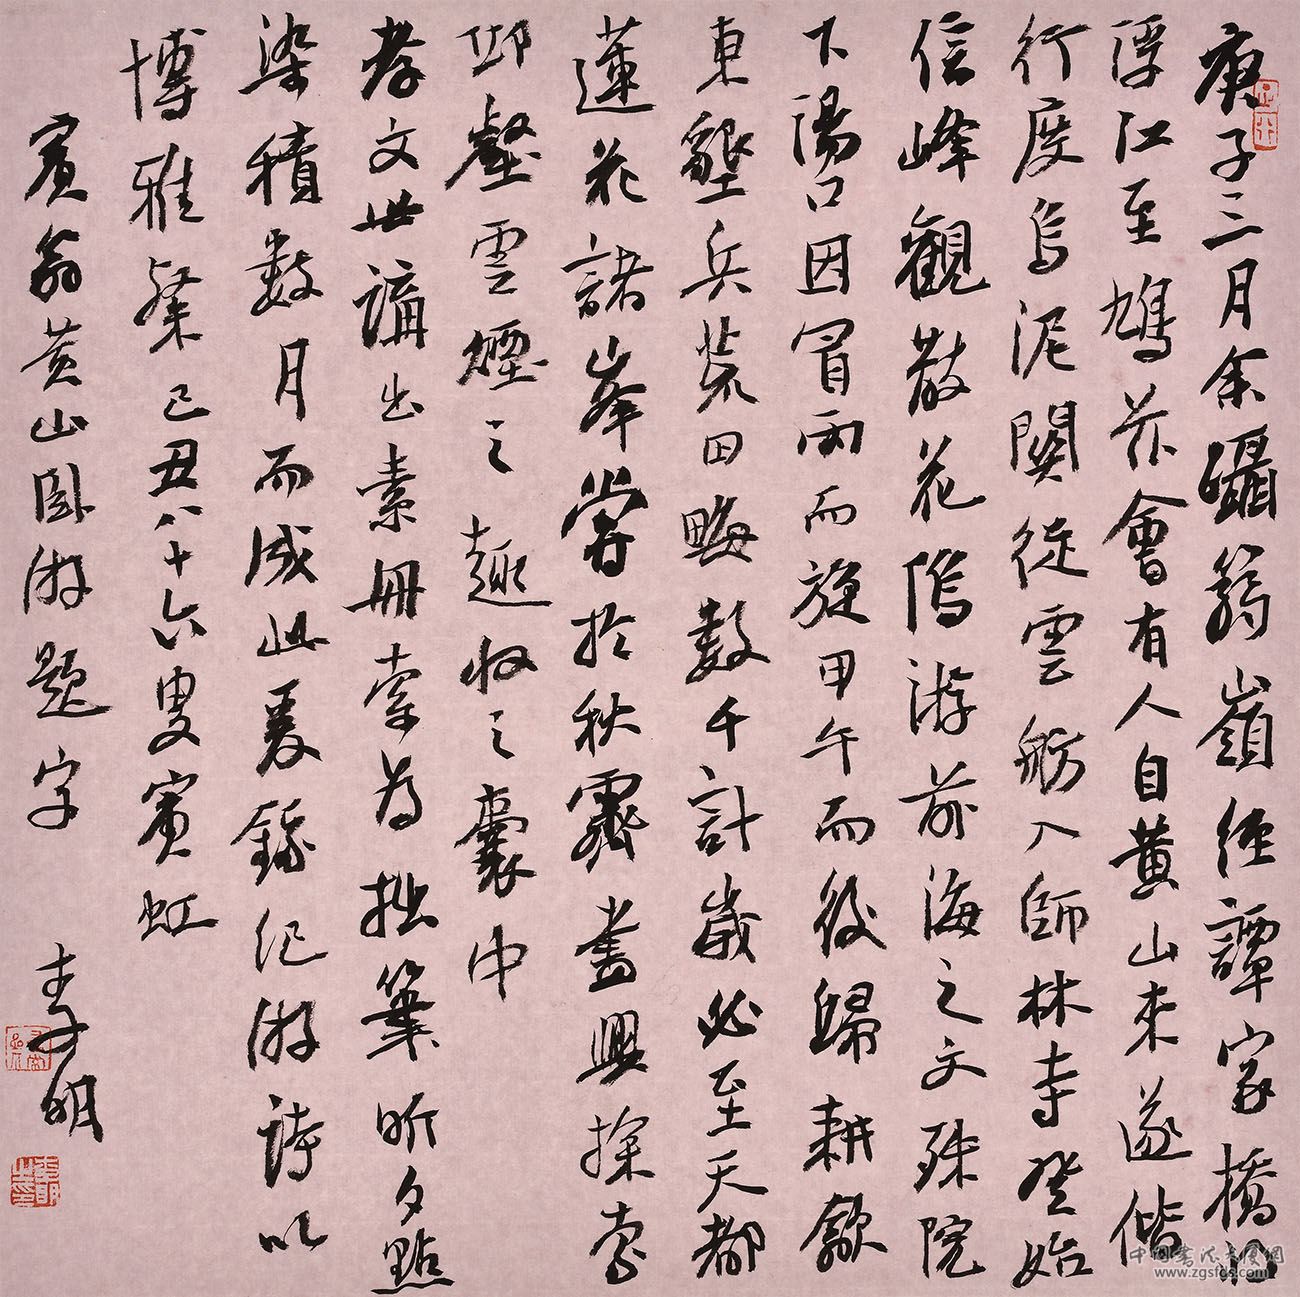 庚子三月余躡篛嶺經譚家橋將
浮江至鳩茲會有人自黃山來遂偕
行度烏泥關從雲舫入師林寺登始
信峰觀散花隖游前海之文殊院
下湯口因冒雨而旋甲午而後歸耕歙
東墾兵荒田畮數千計歲必至天都
蓮花諸峯嘗於秋霽畫興探索
邱壑雲煙之趣收之囊中
孝文世講出素冊索為拙筆昕夕點
染積數月而成此爰錄紀游詩以
博雅粲己丑八十六叟賓虹
賓翁黃山臥游題字
李明
中国书法大厦网
www.zgsfds.com